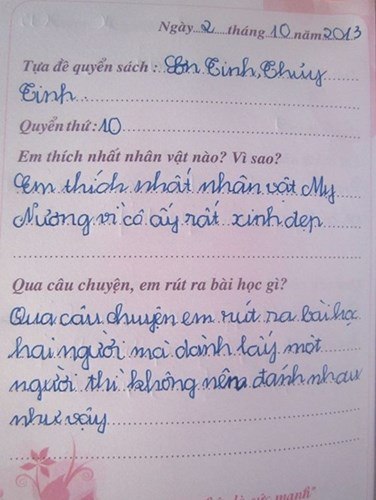 Ngày 2 tháng 10 năm 2013
Tựa đề quyển sách : Sơn Tinh, Thủy
Tinh
Quyển thứ : 10
Em thích nhất nhân vật nào? Vì sao?
Em thích nhất nhân vật Mỵ
Nương vì cô ấy rất xinh đẹp
Qua câu chuyện, em rút ra bài học gì?
Qua câu chuyện em rút ra bài học
hai người mà dành lấy một
người thì không nên đánh nhau
như vậy
mạnh"